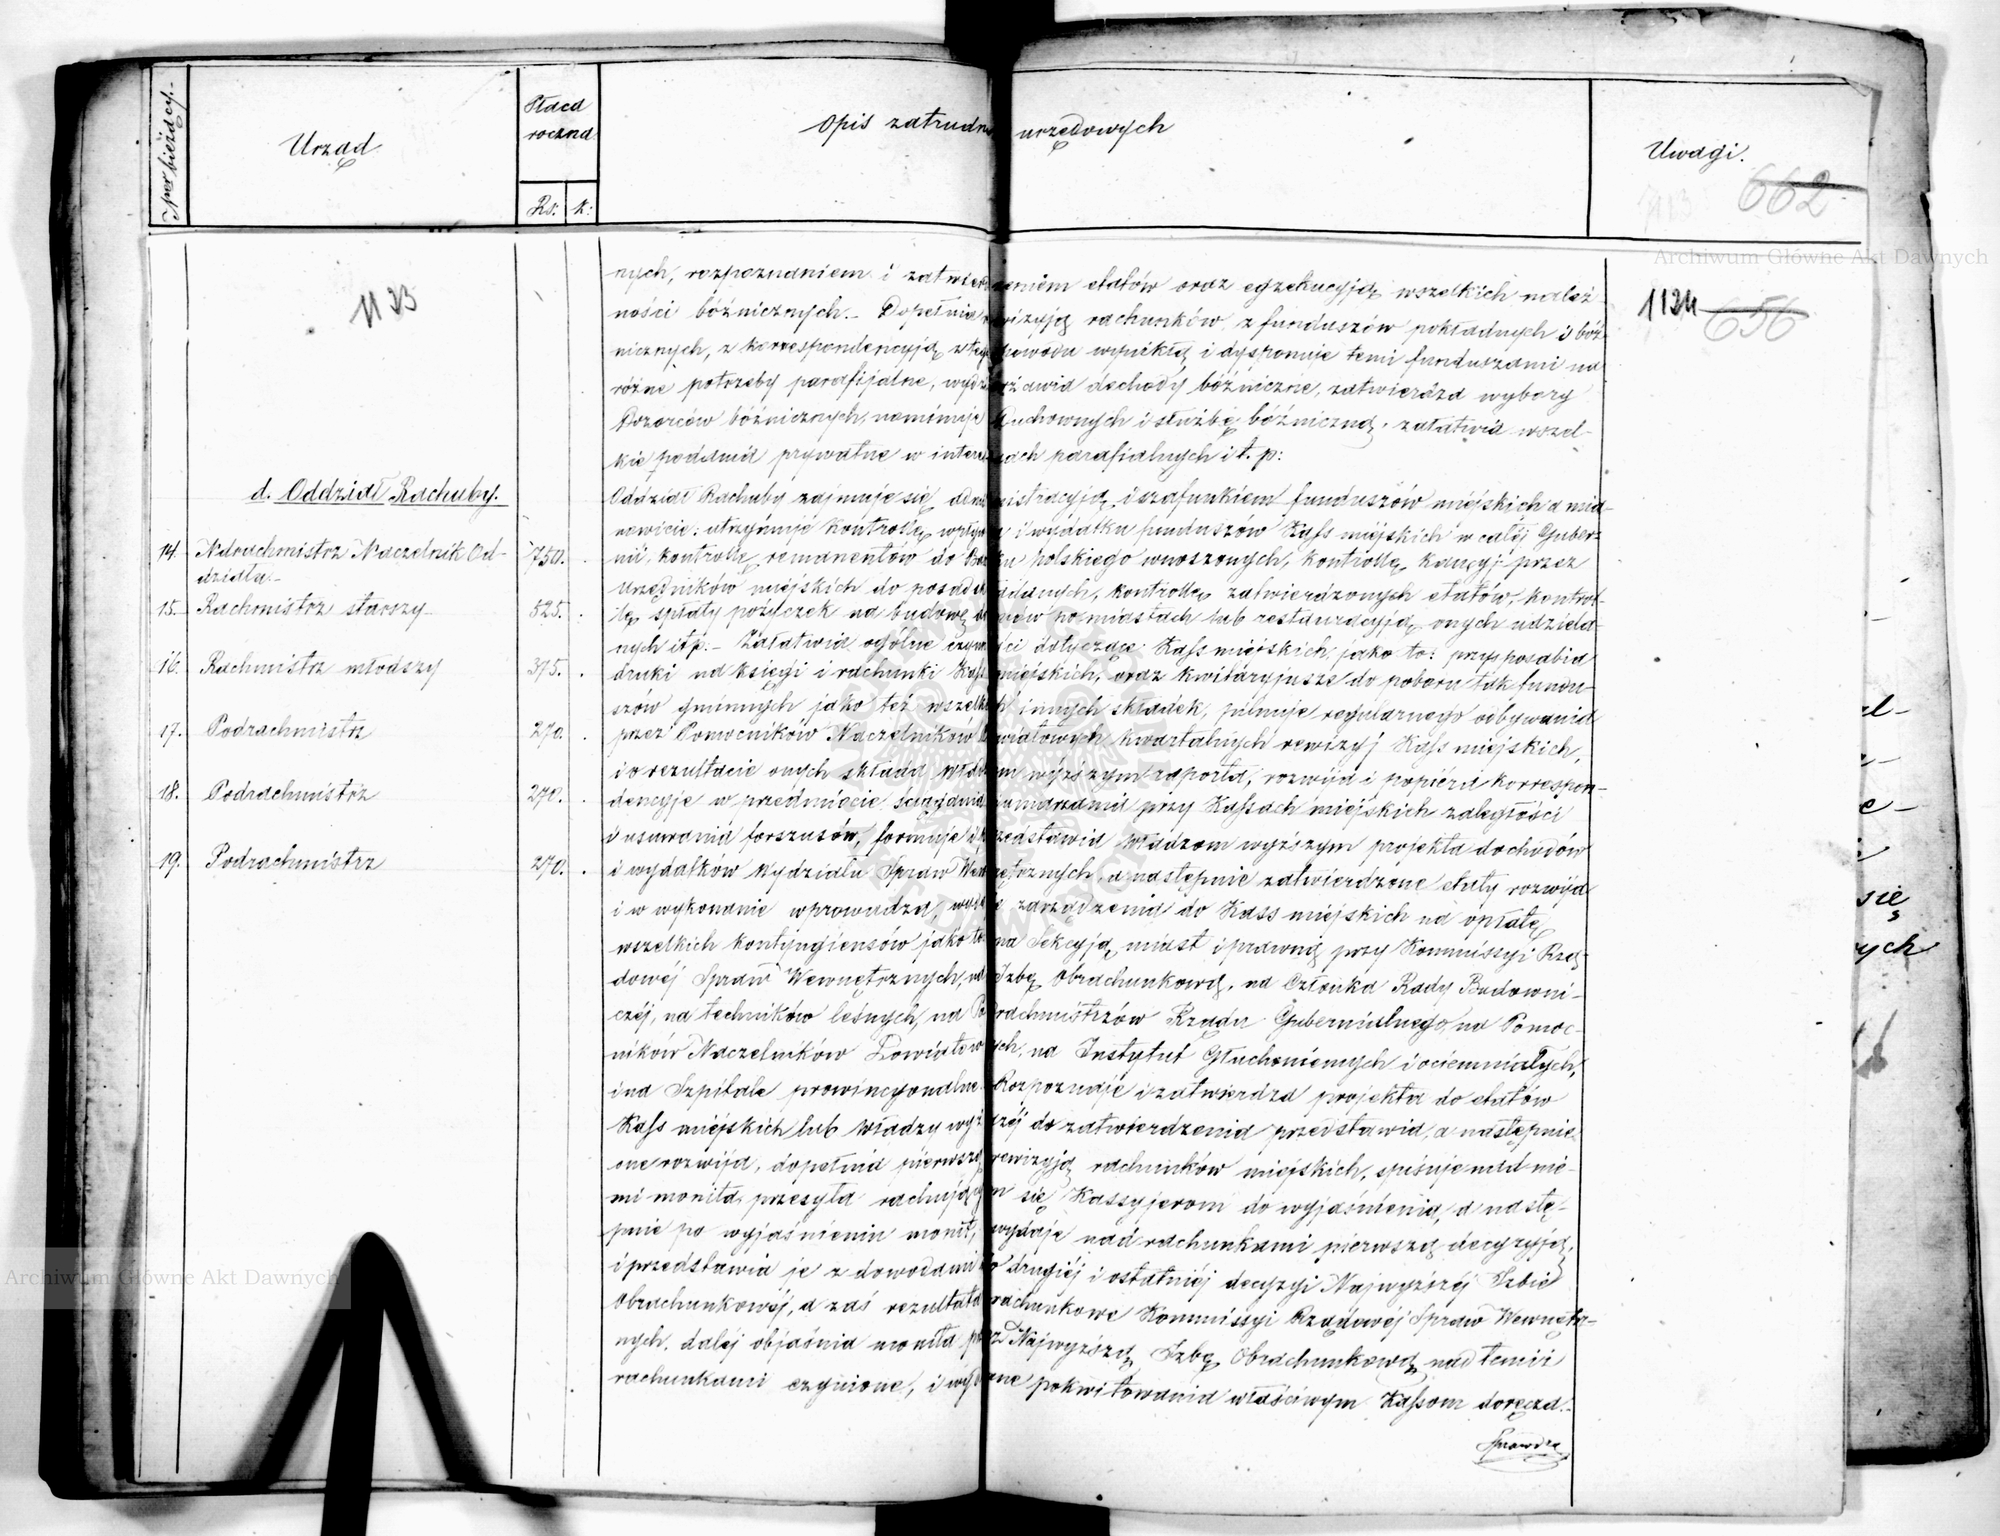 Nner bieżący.
Urząd
Płaca
roczna
Rs: k:
Opis zatrudnień urzędowych
Uwagi.
662
Archiwum Główne Akt Dawnych
1133
1134 656
nych, rozpoznaniem i zatwierdzeniem etatów oraz egzekucyją wszelkich należ-
ności bóżnicznych. Dopełnia rewizyją rachunków z funduszów pokładnych i bóż-
nicznych, z korrespondencyją z tego powodu wynikłą i dysponuje temi funduszami na
różne potrzeby parafijalne, wydzierżawia dochody bóżniczne, zatwierdza wybory
Dozorców bóżnicznych, nominuje Duchownych i służbę bóżniczną, załatwia wszel-
kie podania prywatne w interesach parafialnych i t. p:
d. Oddział Rachuby.
Oddział Rachuby zajmuje się administracyją i szafunkiem funduszów miejskich a mia-
nowicie: utrzymuje kontrollę wpływu i wydatku funduszów Kass miejskich w całej Guber-
14. Nadrachmistrz Naczelnik Od- 750.
działu
nii, kontrollę remanentów do Banku Polskiego wnoszonych, kontrollę kaucyj przez
Urzędników miejskich do posad składanych, kontrollę zatwierdzonych etatów, kontrol-
15. Rachmistrz starszy 525.
lę spłaty pożyczek na budowę domów po miastach lub restauracyją onych udziela-
nych itp. Załatwia ogólne czynności dotyczące Kass miejskich jako to: przysposabia
16. Rachmistrz młodszy 375.
druki na księgi i rachunki Kass miejskich, oraz kwitaryjusze do poboru tak fundu-
szów gminnych jako też wszelkich innych składek, pilnuje regularnego odbywania
17. Podrachmistrz 270.
przez Pomocników Naczelników Powiatowych kwartalnych rewizyj Kass miejskich,
i o rezultacie onych składa Władzom wyższym raporta, rozwija i popiera korrespon-
18. Podrachmistrz 270.
dencyje w przedmiocie ściągania i umarzania przy Kassach miejskich zaległości
i usuwania forszusów, formuje i przedstawia Władzom wyższym projekta dochodów
19. Podrachmistrz 270.
i wydatków Wydziału Spraw Wewnętrznych, a następnie zatwierdzone etaty rozwija
i w wykonanie wprowadza, wydaje zarządzenia do Kass miejskich na opłatę
wszelkich kontyngiensów jako to: na Sekcyją miast i prawną przy Kommissyi Rzą-
dowéj Spraw Wewnętrznych, na Izbę Obrachunkową, na Członka Rady Budowni-
czéj, na techników leśnych, na Podrachmistrzów Rządu Gubernialnego, na Pomoc-
ników Naczelników Powiatowych, na Instytut Głuchoniemych i ociemniałych,
i na Szpitale prowincyonalne. Rozpoznaje i zatwierdza projekta do etatów
Kass miejskich lub Władzy wyższéj do zatwierdzenia przedstawia, a następnie
one rozwija, dopełnia pierwszą rewizyją rachunków miejskich, spisuje nad nie-
mi monita, przesyła rachującym się Kassyjerom do wyjaśnienia, a nastę-
pnie po wyjaśnieniu monit, wydaje nad rachunkami pierwszą decyzyją,
i przedstawia je z dowodami do drugiéj i ostatniéj decyzyi Najwyższéj Izbie
Obrachunkowéj, a zaś rezultata rachunkowe Kommissyi Rządowéj Spraw Wewnętrz-
nych, daléj objaśnia monita przez Najwyższą Izbę Obrachunkową nad temiż
rachunkami czynione, i wydane pokwitowania właściwym Kassom doręcza.
Sprawdza
się
Archiwum Główne Akt Dawnych